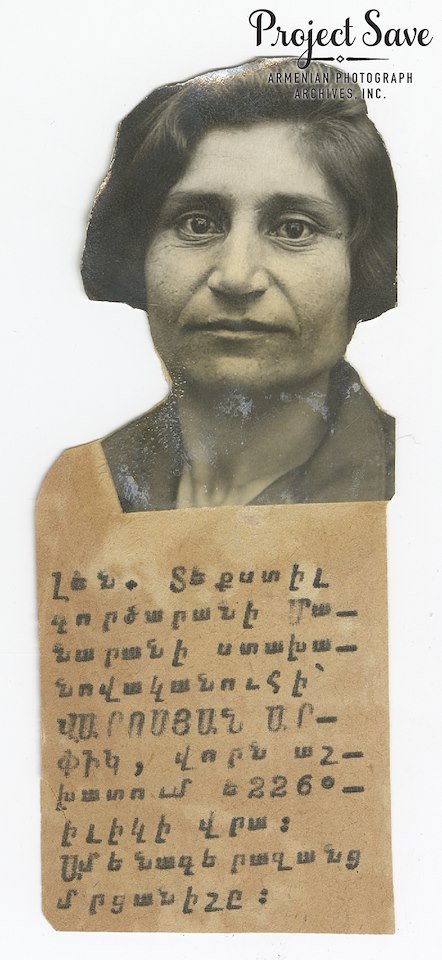 Project Save
ARMENIAN PHOTOGRAPH
ARCHIVES, INC.
Լեն. Տեքստիլ
գործարանի Մա—
նարանի ստախա—
նովականուհի՝
ՎԱՐՈՍՅԱՆ ԱՐ—
ՓԻԿ, վորն աշ—
խատում ե 2260—
իլիկի վրա:
Ամենագերազանց
մրցանիշը: